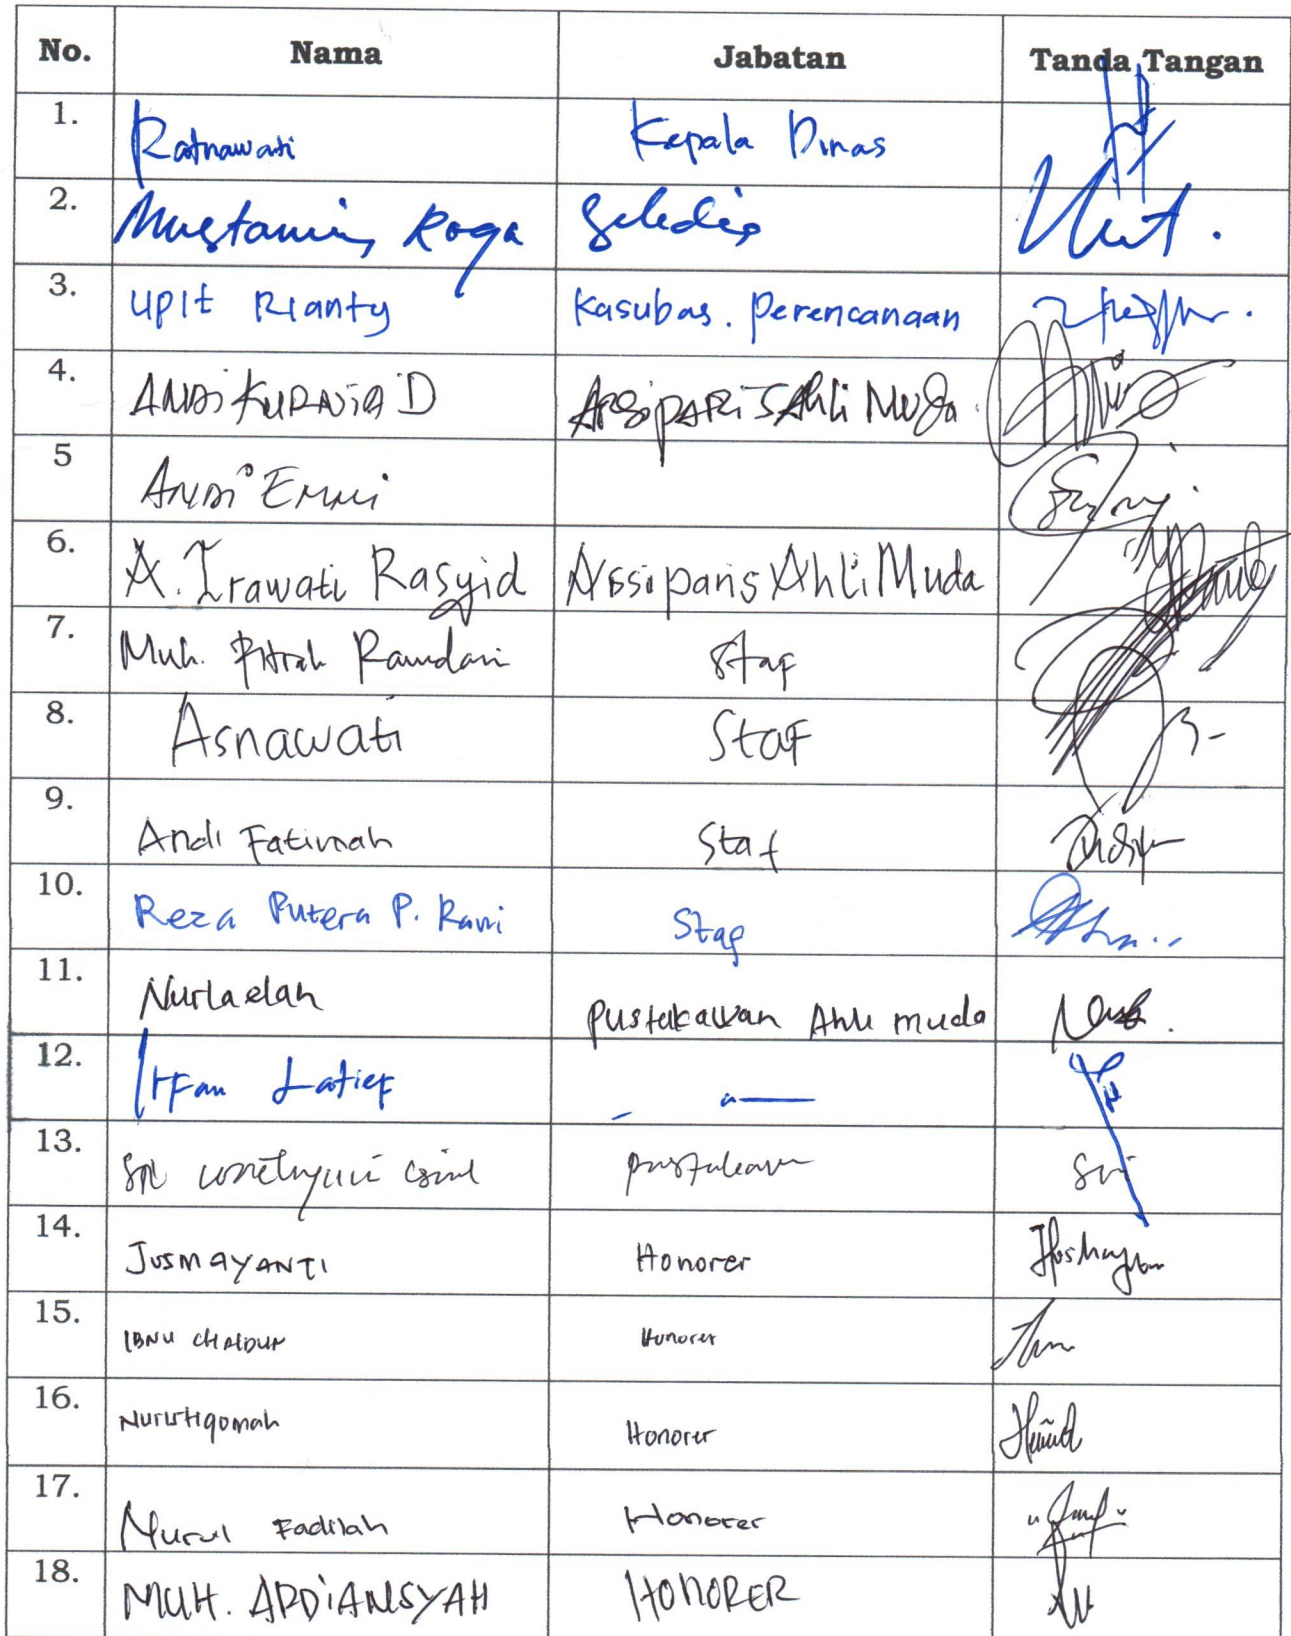 No. Nama Jabatan Tanda Tangan
1. Ratnawati Kepala Dinas
2. Mustamin Roga
3. Upit Rianty Kasubag. Perencanaan
4. ANDi KURNiA D ARSiPARiS Ahli Muda
5 ANDi Emmi
6. A. Irawati Rasyid Arsiparis Ahli Muda
7. Muh. Fitrah Ramdani Staf
8. Asnawati Staf
9. Andi Fatimah Staf
10. Reza Putera P. Staf
11. Nurlaelah Pustakawan Ahli muda
12. Irfan Latief -
13. Sri pustakawan Sri
14. JUSMAYANTI Honorer
15. IBNU CHALDUN Honorer
16. Nuristiqomah Honorer
17. Nurul Fadilah Honorer
18. MUH. ARDiANSYAH HONORER